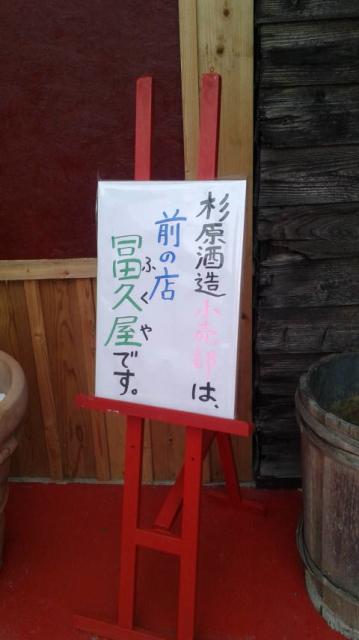 杉原酒造小売部は、
前の店
冨久屋です。
ふくや